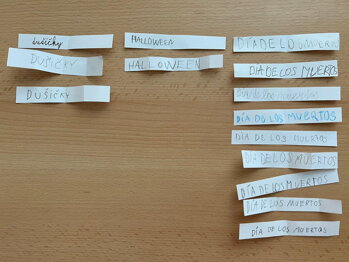 Dušičky
DUŠIČKY
DUŠIČKY
HALLOWEEN
HALLOWEEN
DÍA DE LOS MUERTOS
DÍA DE LOS MUERTOS
DÍA DE LOS MUERTOS
DÍA DE LOS MUERTOS
DÍA DE LOS MUERTOS
DÍA DE LOS MUERTOS
DÍA DE LOS MUERTOS
DÍA DE LOS MUERTOS